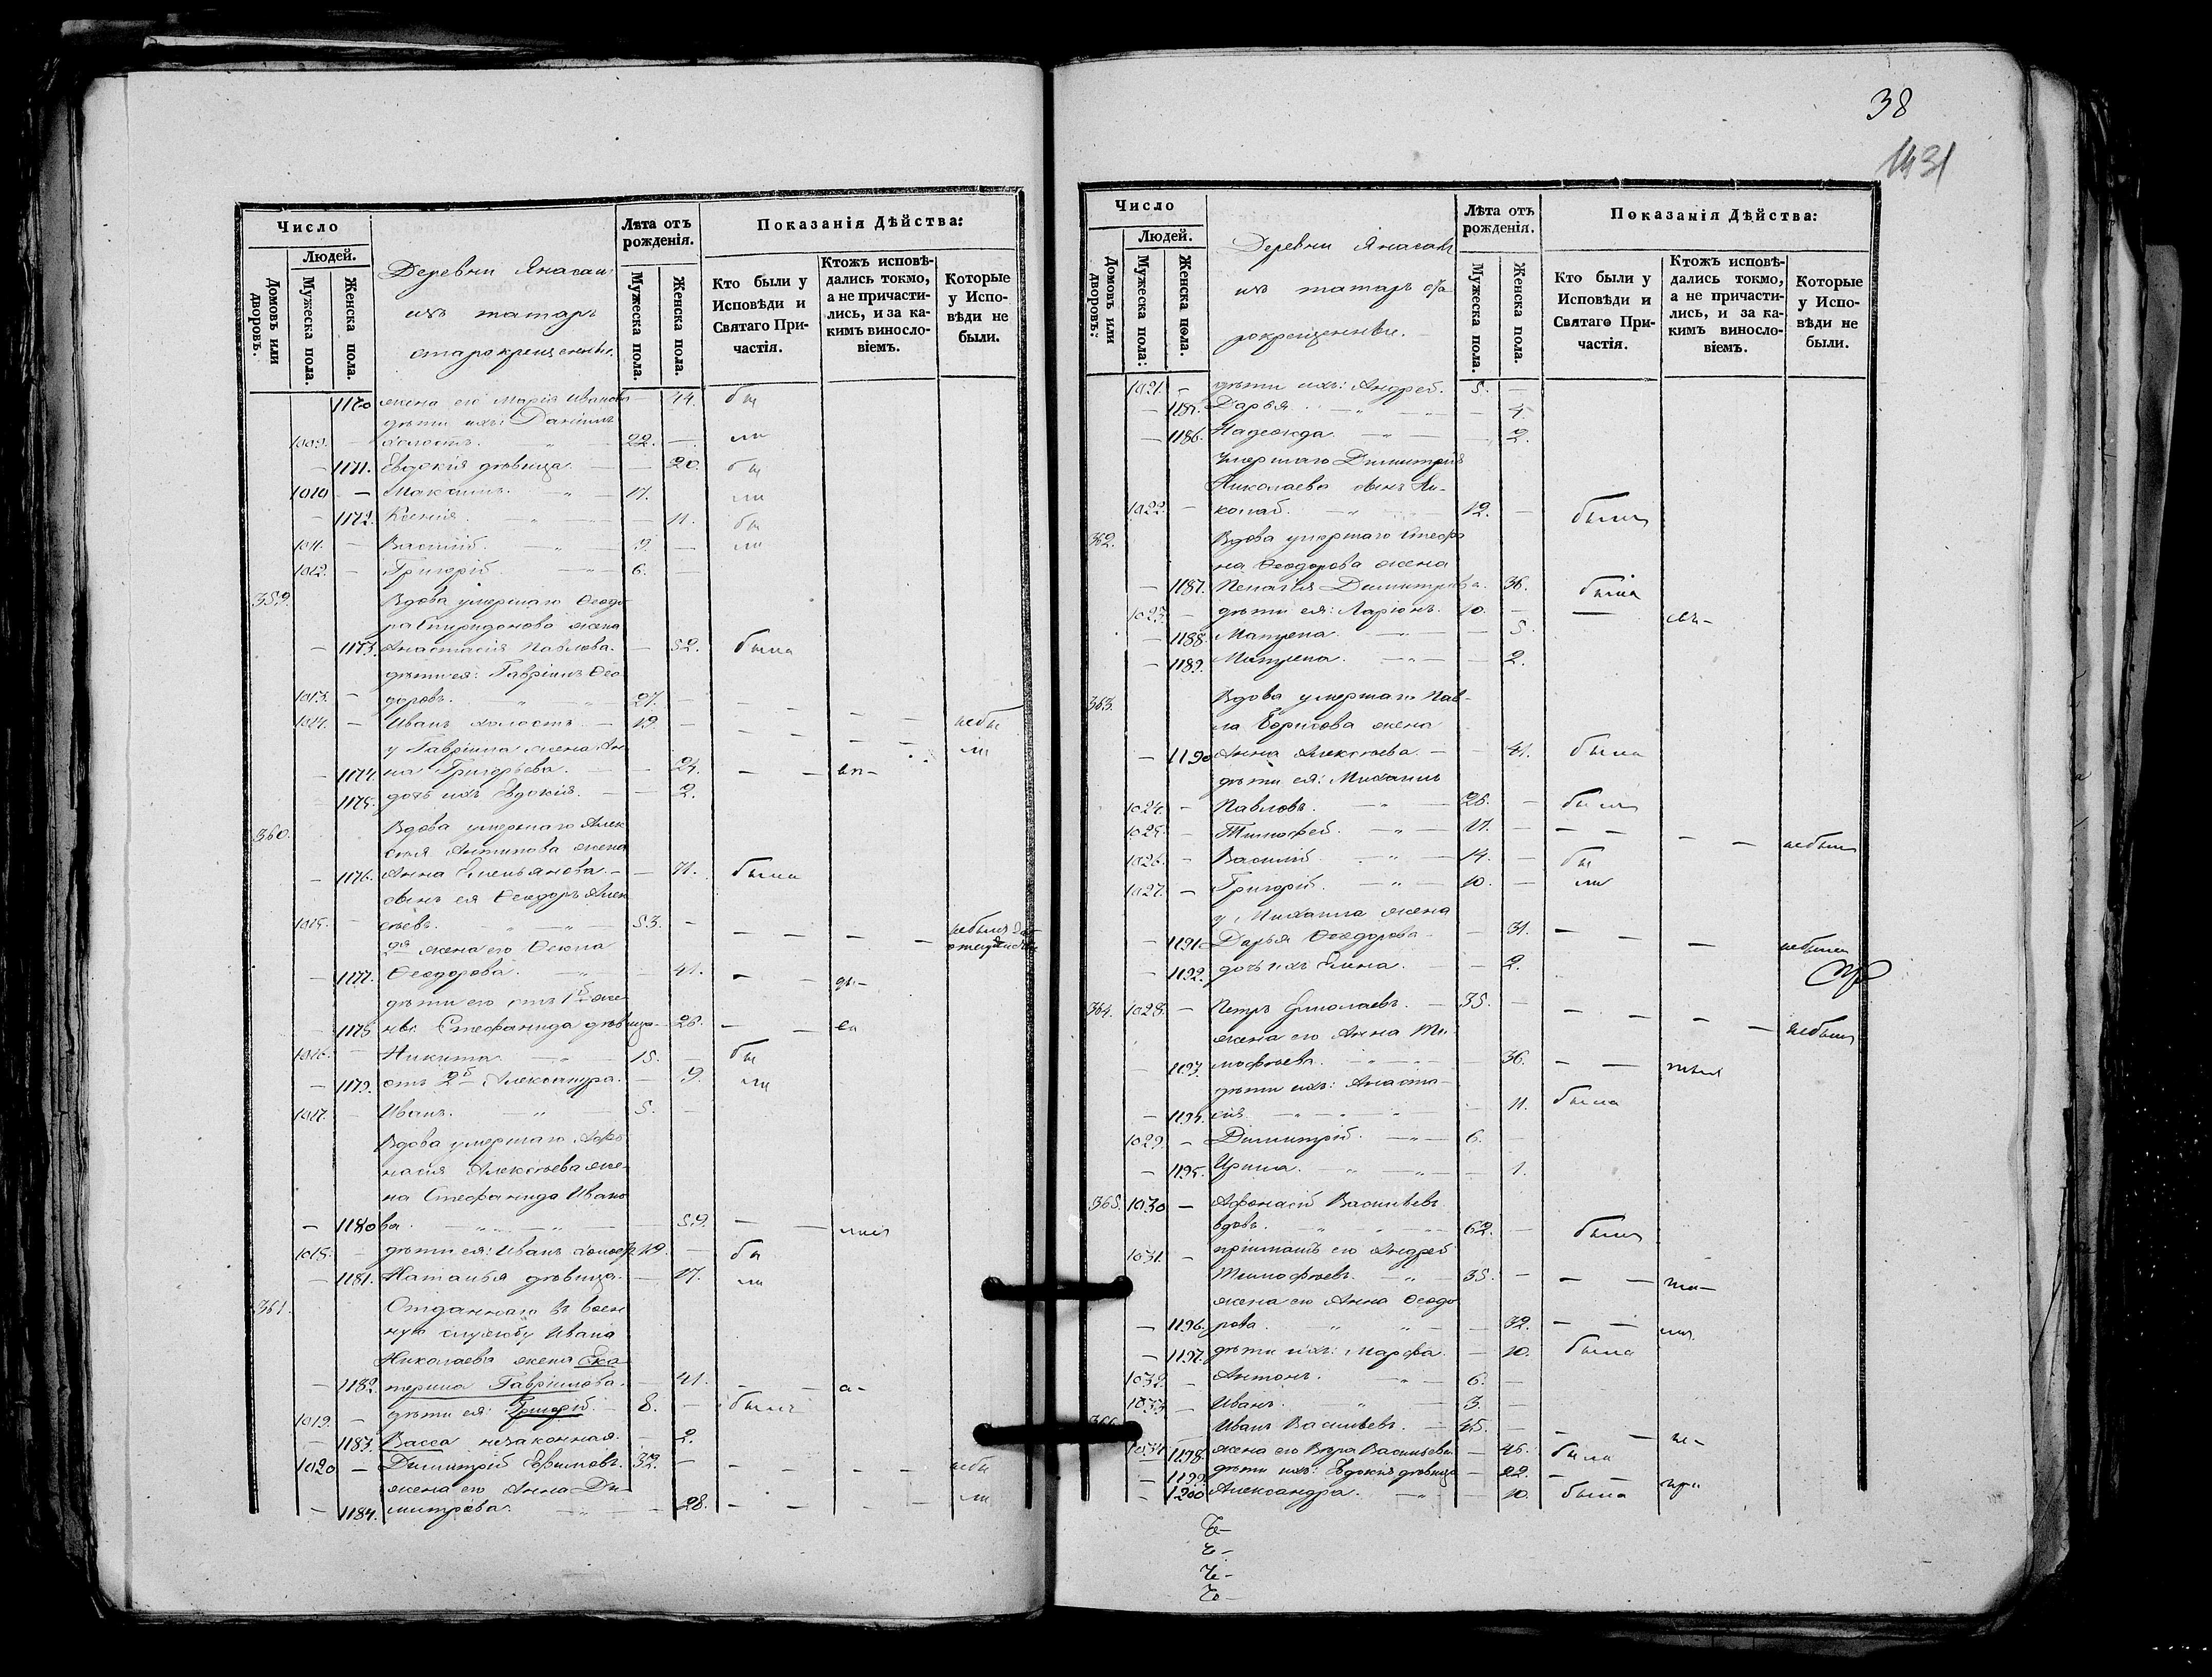 38
1431
Число
Людей.
Домовъ или дворовъ.
Мужеска пола.
Женска пола.
Деревни
ихъ татаръ
старокрещенныхъ.
Лѣта отъ рожденія.
Мужеска пола.
Женска пола.
Показанія Дѣйства:
Кто были у Исповѣди и Святаго Причастія.
Ктожъ исповѣдались токмо, а не причастились, и за какимъ винословіемъ.
Которые у Исповѣди не были.
1170 жена его Марія Иванова — 44. бы
дѣти ихъ: Даніилъ
1009. — холостъ. 22. — ли
— 1171. Евдокія дѣвица. — 20. бы
1010 — Максимъ. 17. ли
— 1172. Ксенія. — 11. бы
1011. — Василій. 9. — ли
1012. — Григорій. 6. —
359. Вдова умершаго Ѳеодо
ра Спиридонова жена
— 1173. Анастасія Павлова. — 52. была
дѣти ея: Гавріилъ Ѳео
1013. — доровъ. 27. —
1014. — Иванъ холостъ. 19 — небы
у Гавріила жена Ан ли
— 1174. на Григорьева. — 24.
1175. дочь ихъ Евдокія. — 2.
360. Вдова умершаго Алек
сѣя Антипова жена
— 1176. Анна Емельянова. — 71. была
сынъ ея Ѳеодоръ Алек
1015. — сѣевъ. 53. — небылъ
2я жена его Ѳекла
— 1177. Ѳеодорова. — 41.
дѣти его отъ 1й же
— 1178 ны: Стефанида дѣвица — 28.
1016. — Никита. 15. — бы
— 1179. отъ 2й Александра. — 9. ли
1017. — Иванъ. 5. —
Вдова умершаго Афо
насія Алексѣева же
на Стефанида Ивано
— 1180 ва. — 59.
1018. — дѣти ея: Иванъ холостъ 19. — бы
— 1181. Наталья дѣвица. — 17. ли
361. Отданнаго въ воен
ную службу Ивана
Николаева жена Ека
— 1182. терина Гавріилова. — 41.
1019. — дѣти ея: Григорій. 8. — былъ
— 1183. Васса незаконная. — 2.
1020 — Димитрій Ефимовъ. 32. — небы
жена его Анна Ди
— 1184. митріева. — 28. ли
Число
Людей.
Домовъ или дворовъ:
Мужеска пола:
Женска пола.
Деревни
ихъ татаръ ста
рокрещенныхъ.
Лѣта отъ рожденія.
Мужеска пола.
Женска пола.
Показанія Дѣйства:
Кто были у Исповѣди и Святаго Причастія.
Ктожъ исповѣдались токмо, а не причастились, и за какимъ винословіемъ.
Которые у Исповѣди не были.
1021. — дѣти ихъ: Андрей. 5. —
— 1185. Дарья. — 4.
— 1186. Надежда. — 2.
Умершаго Димитрія
Николаева сынъ Ни
1022. — колай. 12. — былъ
362. Вдова умершаго Стефа
на Ѳеодорова жена
— 1187. Пелагія Димитріева. 36. была
1023. — дѣти ея: Ларіонъ. 10. —
— 1188. Матрена. — 5.
— 1189. Матрена. — 2.
363. Вдова умершаго Пав
ла Борисова жена
— 1190 Анна Алексѣева. — 41. была
дѣти ея: Михаилъ
1024. — Павловъ. 26. — былъ
1025. — Тимофей. 17. — небылъ
1026. — Василій. 14. — бы
1027. — Григорій. 10. — ли
у Михаила жена
— 1191. Дарья Ѳеодорова — 31. небыла
— 1192. дочь ихъ Елена. — 2.
364. 1028. — Петръ Ермолаевъ. 35. — небылъ
жена его Анна Ти
— 1193. мофѣева. — 36.
дѣти ихъ: Анаста
— 1194. сія. — 11. была
1029. — Димитрій. 6. —
— 1195. Ирина. — 1.
365. 1030 — Афонасій Васильевъ
вдовъ. 62. — былъ
1031. — пріимышъ его Андрей
Тимофѣевъ. 35. —
жена его Анна Ѳеодо
— 1196. рова. — 32.
— 1197. дѣти ихъ: Марфа. — 10. была
1032. — Антонъ. 6. —
1033 — Иванъ. 3. —
366. Иванъ Васильевъ. — 45. —
1034. 1198. жена его Вѣра Васильева — 46. была
— 1199. дѣти ихъ: Евдокія дѣвица — 22. —
— 1200 Александра. — 10. была